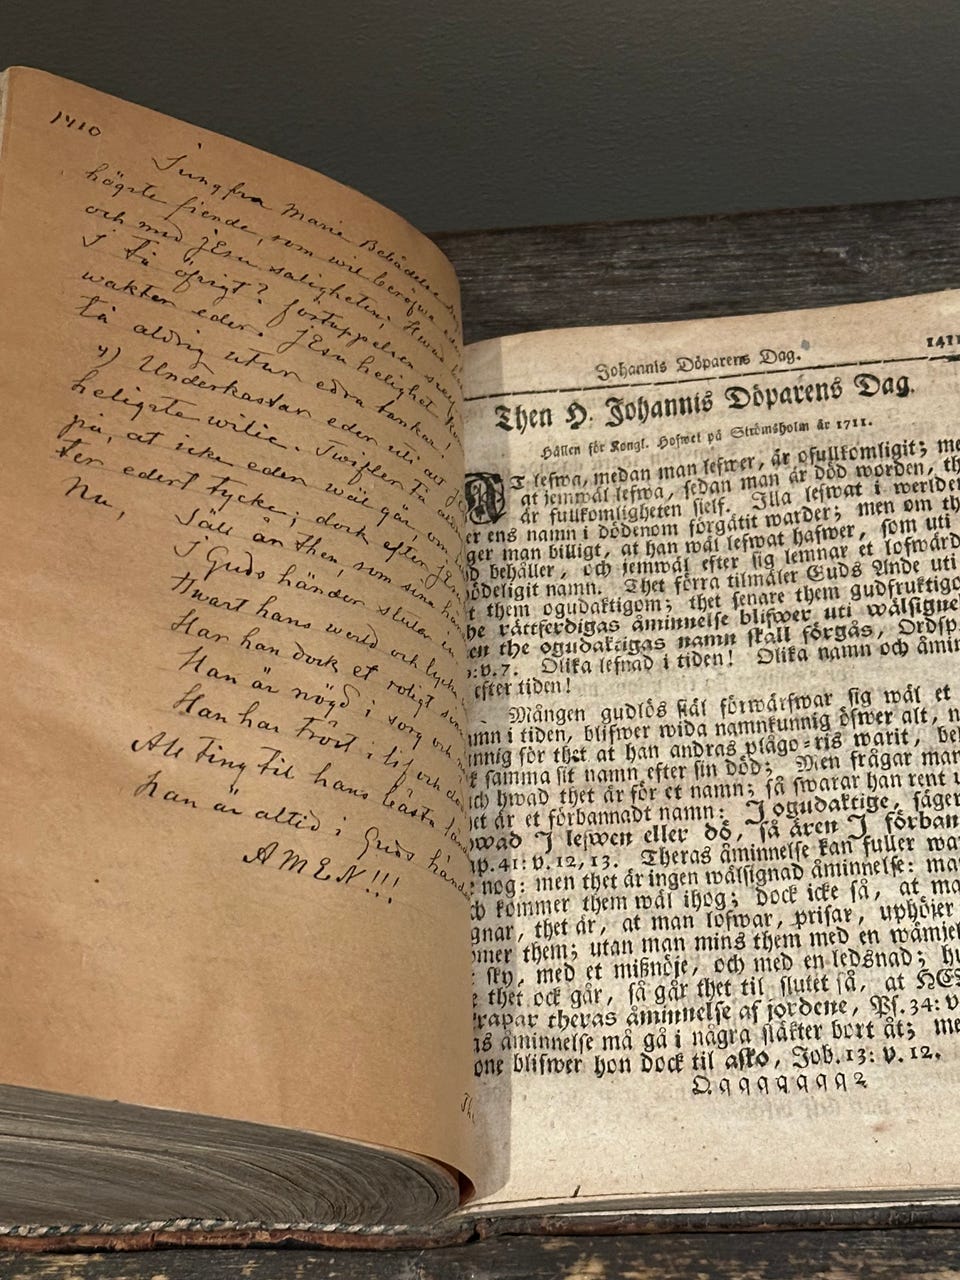 1410
Jungfru Marie Bebådelse dag
högste fiende, som wil beröfwa eder
och med JEsu saligheten; Hwad
I tå öfrigt? förtappelsen
wakter eder. JEsu helighet
tå aldrig utur edra tankar!
4) Underkastar eder uti alt
heligste wilie. Twifler tå
på, at icke eder wäl går, om
ter edert tycke; dock efter JEsu
Nu,
Säll är then, som sina
I Guds händer sluter in
Hwart hans werld och lycka
Har han dock et roligt sin
Han är nögd i sorg och
Han har tröst i lif och
Alt ting til hans bästa länder
Han är altid i Guds händer
AMEN!!!
Johannis Döparens Dag. 1411
Then H. Johannis Döparens Dag.
Hållen för Kongl. Hofwet på Strömsholm år 1711.
AT lefwa, medan man lefwer, är ofullkomligit; me
at jemwäl lefwa, sedan man är död worden, th
är fullkomligheten sielf. Illa lefwat i werlden
er ens namn i dödenom förgätit warder; men om th
ger man billigt, at han wäl lefwat hafwer, som uti
behåller, och jemwäl efter sig lemnar et lofwärd
ödeligit namn. Thet förra tilmäler Guds Ande uti
t them ogudaktigom; thet senare them gudfruktigo
he rättferdigas åminnelse blifwer uti wälsignel
en the ogudaktigas namn skall förgås, Ordsp.
v. 7. Olika lefnad i tiden! Olika namn och åmin
efter tiden!
Mången gudlös siäl förwärfwar sig wäl et
mn i tiden, blifwer wida namnkunnig öfwer alt, n
nnig för thet at han andras plågo-ris warit, be
samma sit namn efter sin död; Men frågar mar
ch hwad thet är för et namn; så swarar han rent u
et är et förbannadt namn: I ogudaktige, säger
wad I lefwen eller dö, så ären I förban
p. 41: v. 12, 13. Theras åminnelse kan fuller wa
nog: men thet är ingen wälsignad åminnelse: ma
kommer them wäl ihog; dock icke så, at ma
gnar, thet är, at man lofwar, prisar, uphöjer
mer them; utan man mins them med en wämjel
sky, med et mißnöje, och med en ledsnad; hu
thet ock går, så går thet til slutet så, at HE
rapar theras åminnelse af jordene, Ps. 34: v
as åminnelse må gå i några släkter bort åt; me
one blifwer hon dock til asko, Job. 13: v. 12.
Qqqqqqqqq 2